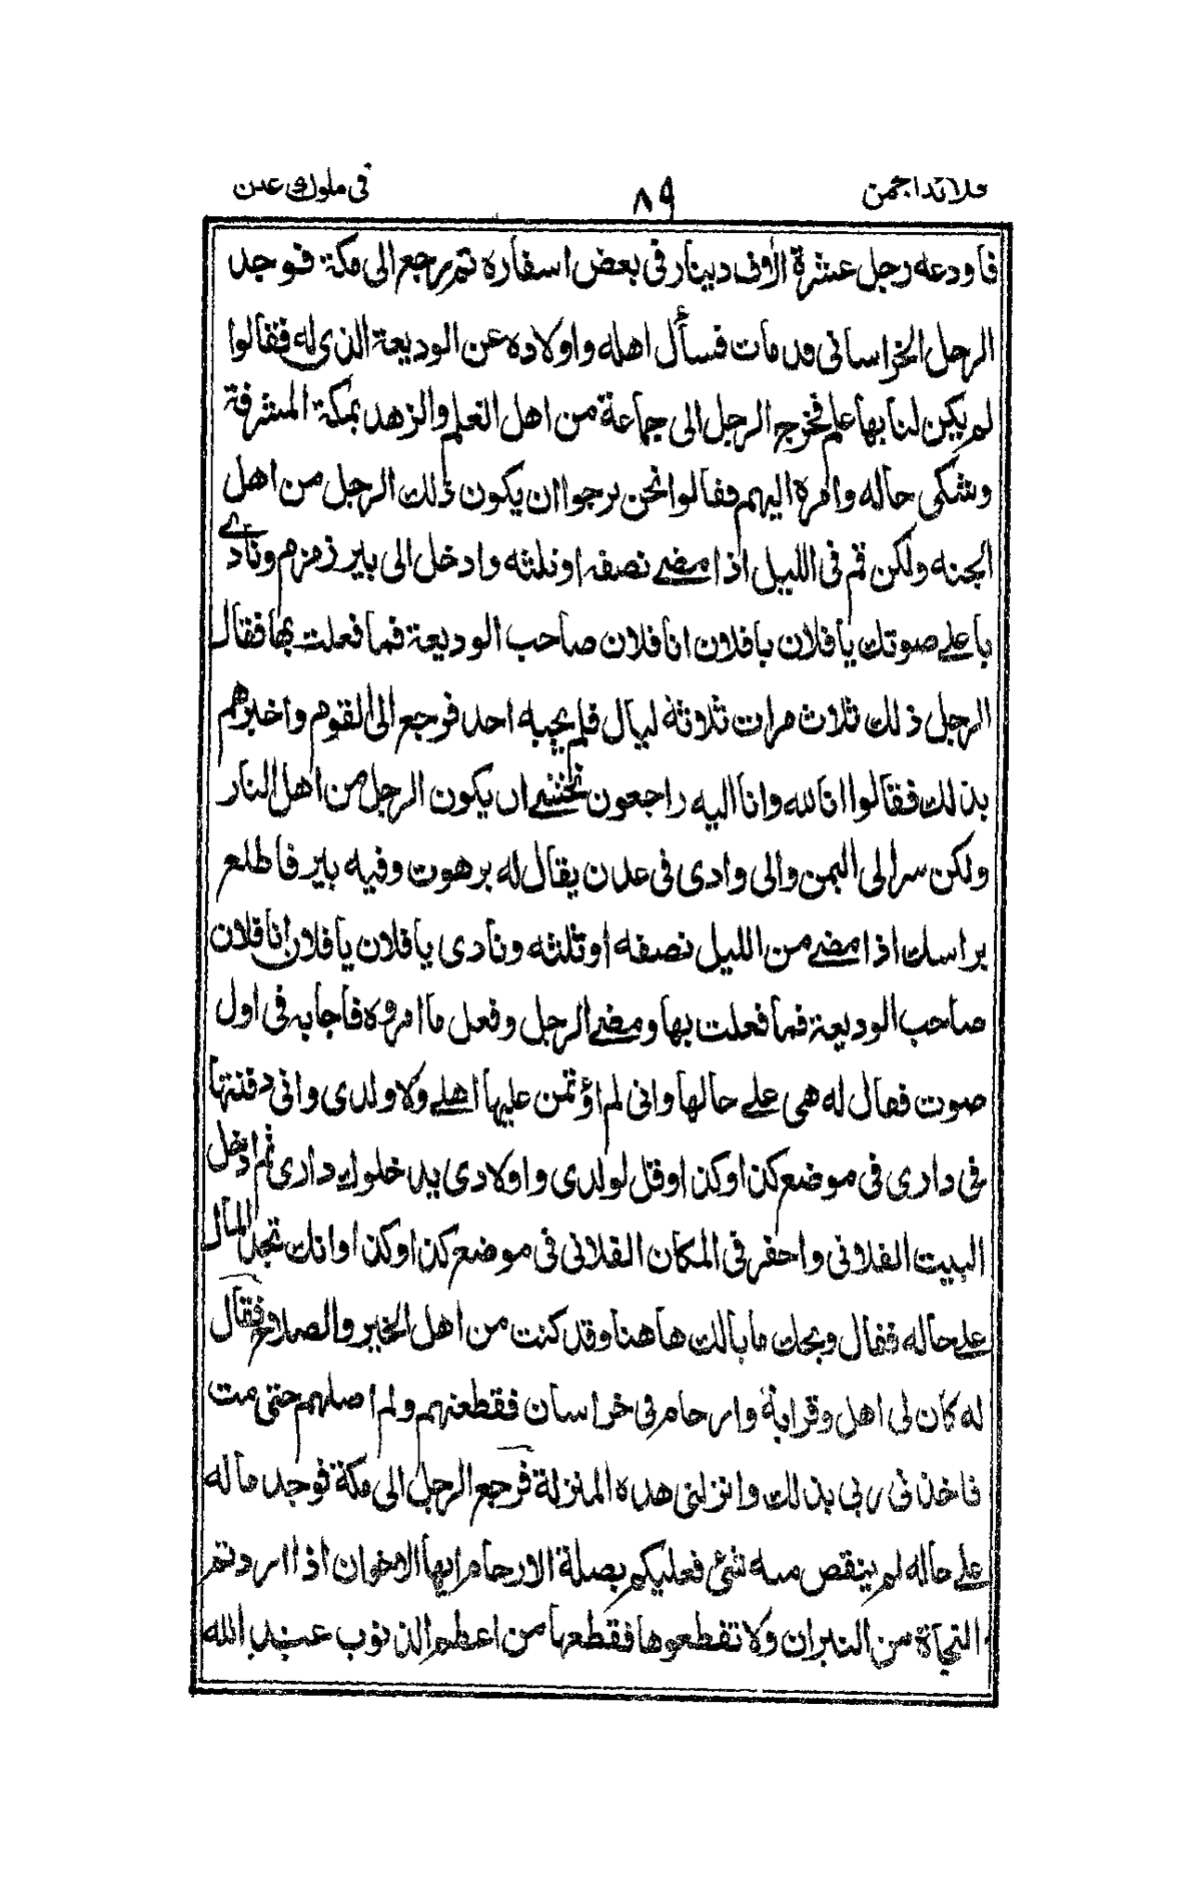 قلائد اجمن ٨٩ في ملوك عدن
فاودعه رجل عشرة الاوف دينار في بعض اسفاره ثم رجع الى مكة فوجد
الرجل الخراساني قد مات فسأل اهله واولاده عن الوديعة الذي له فقالوا
لم يكن لنا بها علم فخرج الرجل الى جماعة من اهل العلم والزهد بمكة المشرفة
وشكى حاله وامره اليهم فقالوا نحن نرجوا ان يكون ذلك الرجل من اهل
الجنه ولكن قم في الليل اذا مضى نصفه او ثلثه وادخل الى بير زمزم ونادى
باعلى صوتك يا فلان يا فلان انا فلان صاحب الوديعة فما فعلت بها فقال
الرجل ذلك ثلاث مرات ثلاثة ليال فلم يجبه احد فرجع الى القوم واخبرهم
بذلك فقالوا انا لله وانا اليه راجعون نخشى ان يكون الرجل من اهل النار
ولكن سر الى اليمن والى وادى في عدن يقال له برهوت وفيه بير فاطلع
براسك اذا مضى من الليل نصفه او ثلثه ونادى يا فلان يا فلان انا فلان
صاحب الوديعة فما فعلت بها ومضى الرجل وفعل ما امروه فاجابه في اول
صوت فقال له هي على حالها واني لم اؤتمن عليها اهلى ولا ولدى واني دفنتها
في دارى في موضع كذا وكذا وقل لولدى واولادى يدخلوك دارى ثم ادخل
البيت الفلاني واحفر في المكان الفلاني في موضع كذا وكذا وانك تجد المال
على حاله فقال ويحك ما بالك هاهنا وقد كنت من اهل الخير والصلاح فقال
له كان لى اهل وقرابة وارحام في خراسان فقطعتهم ولم اصلهم حتى مت
فاخذني ربي بذلك وانزلني هذه المنزلة فرجع الرجل الى مكة فوجد ماله
على حاله لم ينقص منه شئ فعليكم بصلة الارحام ايها الاخوان اذا اردتم
النجاة من النيران ولا تقطعوها فقطعها من اعظم الذنوب عند الله